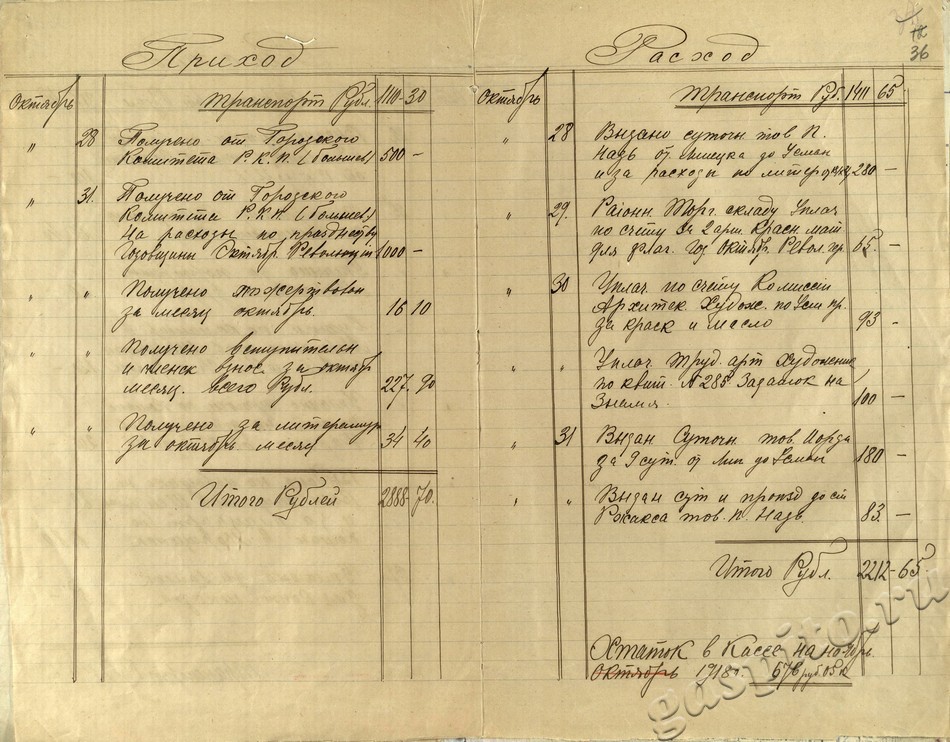 36
Приход
Октябрь Транспорт Рубл. 1110-30
" 28 Получено от Городского
Комитета Р.К.П. (большев) 500 -
" 31. Получено от Городского
Комитета Р.К.П. (большев)
на расходы по празднству
Годовщины Октябр. Революции 1000 -
" " Получено пожертвован
за месяц октябрь. 16 10
" " Получено вступительн
и членск взнос за октябр
месяц. всего Рубл. 227. 90
" " Получено за литератур
за октябрь месяц 34 40
Итого Рублей 2888-70.
Расход
Октябрь Транспорт Руб. 1411 65
" 28 Выдано суточн тов П.
Надь от Липецка до Усман
и за расходы по литературу 280 -
" 29. Районн. Торг. складу Уплач
по счету за 2 арш. красн мат
для флаг. Год. Октябр. Револ. гр. 65. -
" 30 Уплач. по счету Комиссии
Архитек. Худож. по
за краск и масло 93 -
" " Уплач. Труд. арт Художник
по квит. № 285. Задаток на
Знамя. 100 -
" 31 Выдан Суточн. тов.
за 9 сут. от Лип до Усмань 180 -
" " Выдан сут и проезд до ст
Ржакса тов. П. Надь. 83. -
Итого Рубл. 2212-65.
Остаток в Кассе на ноябрь
октябрь 1918 г. 676 руб. 05 к
gaspito.ru